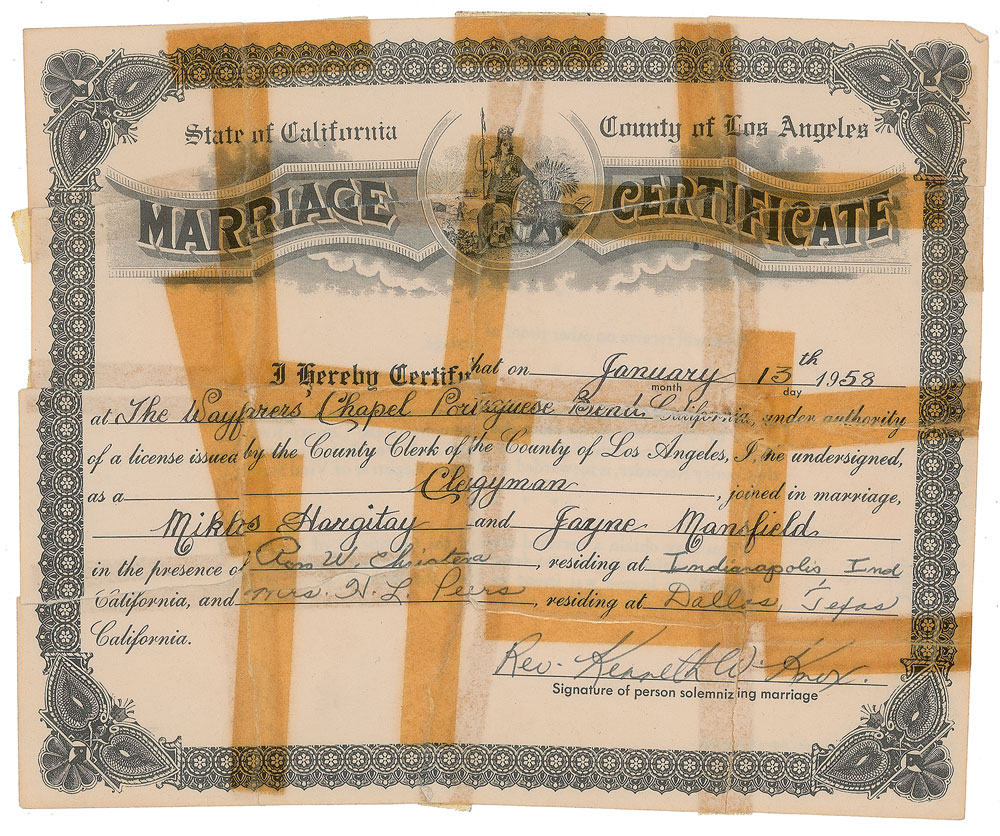 State of California
County of Los Angeles
MARRIAGE CERTIFICATE
I Hereby Certify that on January 13th 1958
month day
at The Wayfarers' Chapel Portuguese Bend, California, under authority
of a license issued by the County Clerk of the County of Los Angeles, I, the undersigned,
as a Clergyman, joined in marriage,
Miklos Hargitay and Jayne Mansfield
in the presence of W. , residing at Indianapolis, Ind
California, and Mrs. H. L. Peers, residing at Dallas, Texas
California.
Rev. Kenneth W. Knox.
Signature of person solemnizing marriage